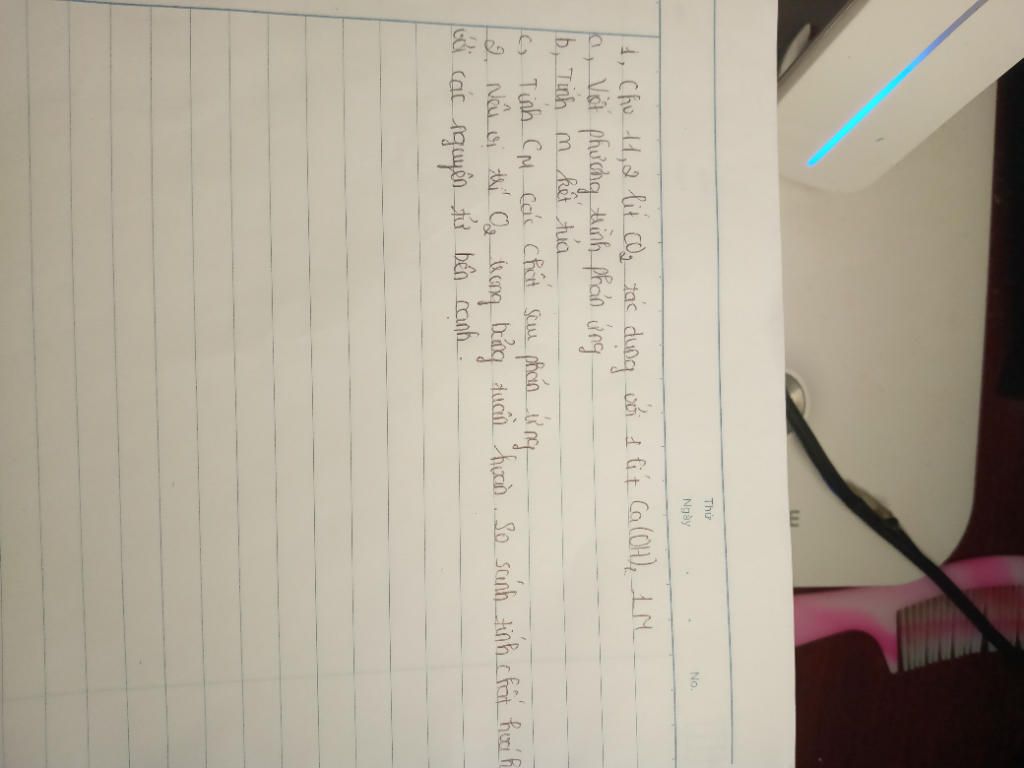 Thứ
Ngày
No.
1, Cho 11,2 lit CO2 tác dụng với 1 lit Ca(OH)2 1M
a, Viết phương trình phản ứng
b, Tính m kết tủa
c, Tính CM các chất sau phản ứng
2, Nêu vị trí O2 trong bảng tuần hoàn. So sánh tính chất hoá h
với các nguyên tử bên cạnh.